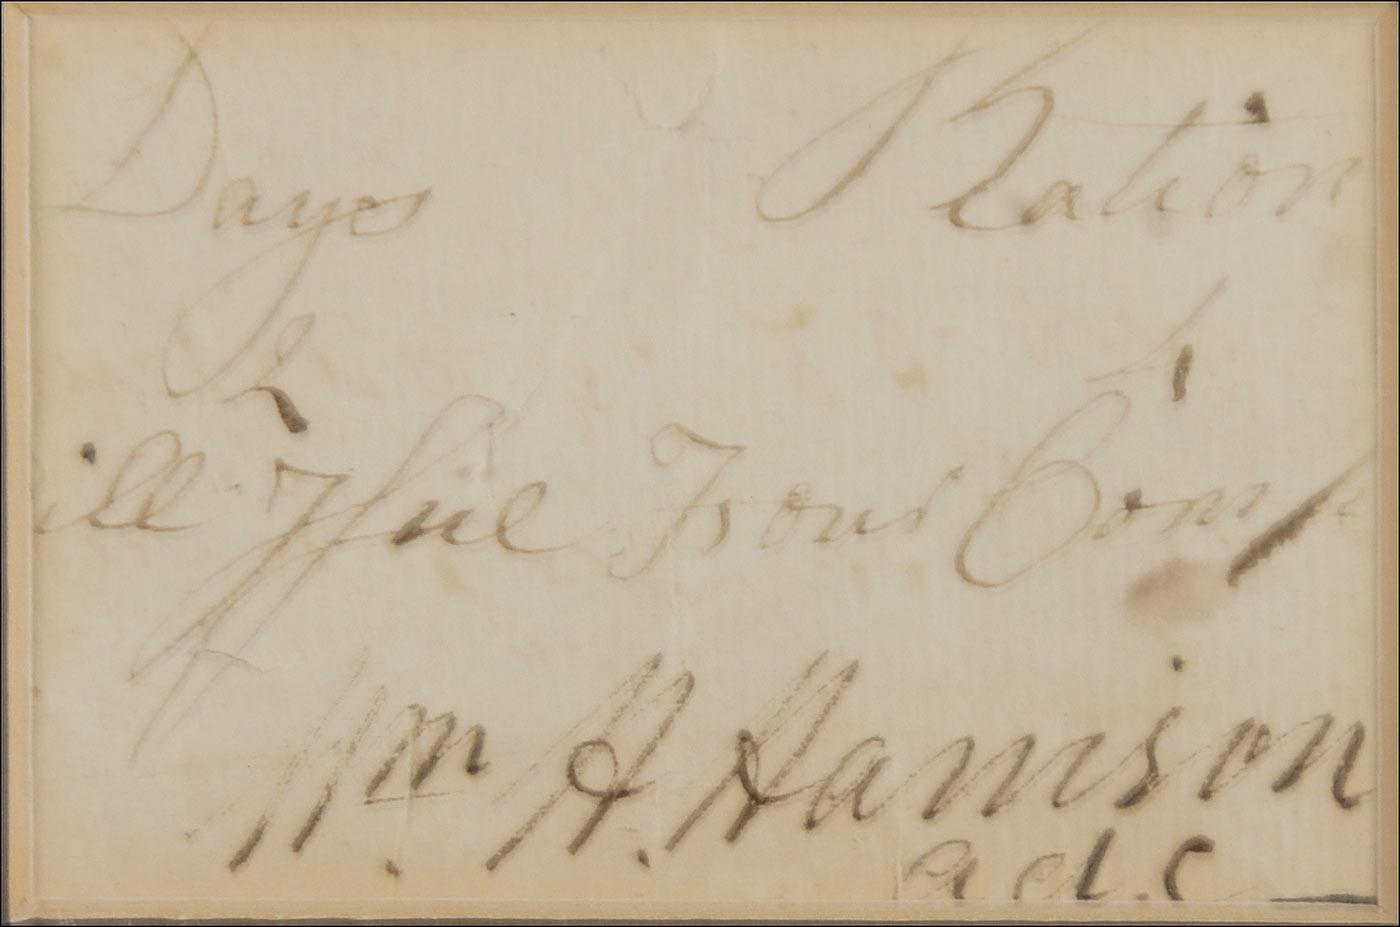 Days Ration
2 4
ill Issue Four Comp
Wm. H. Harrison
adc